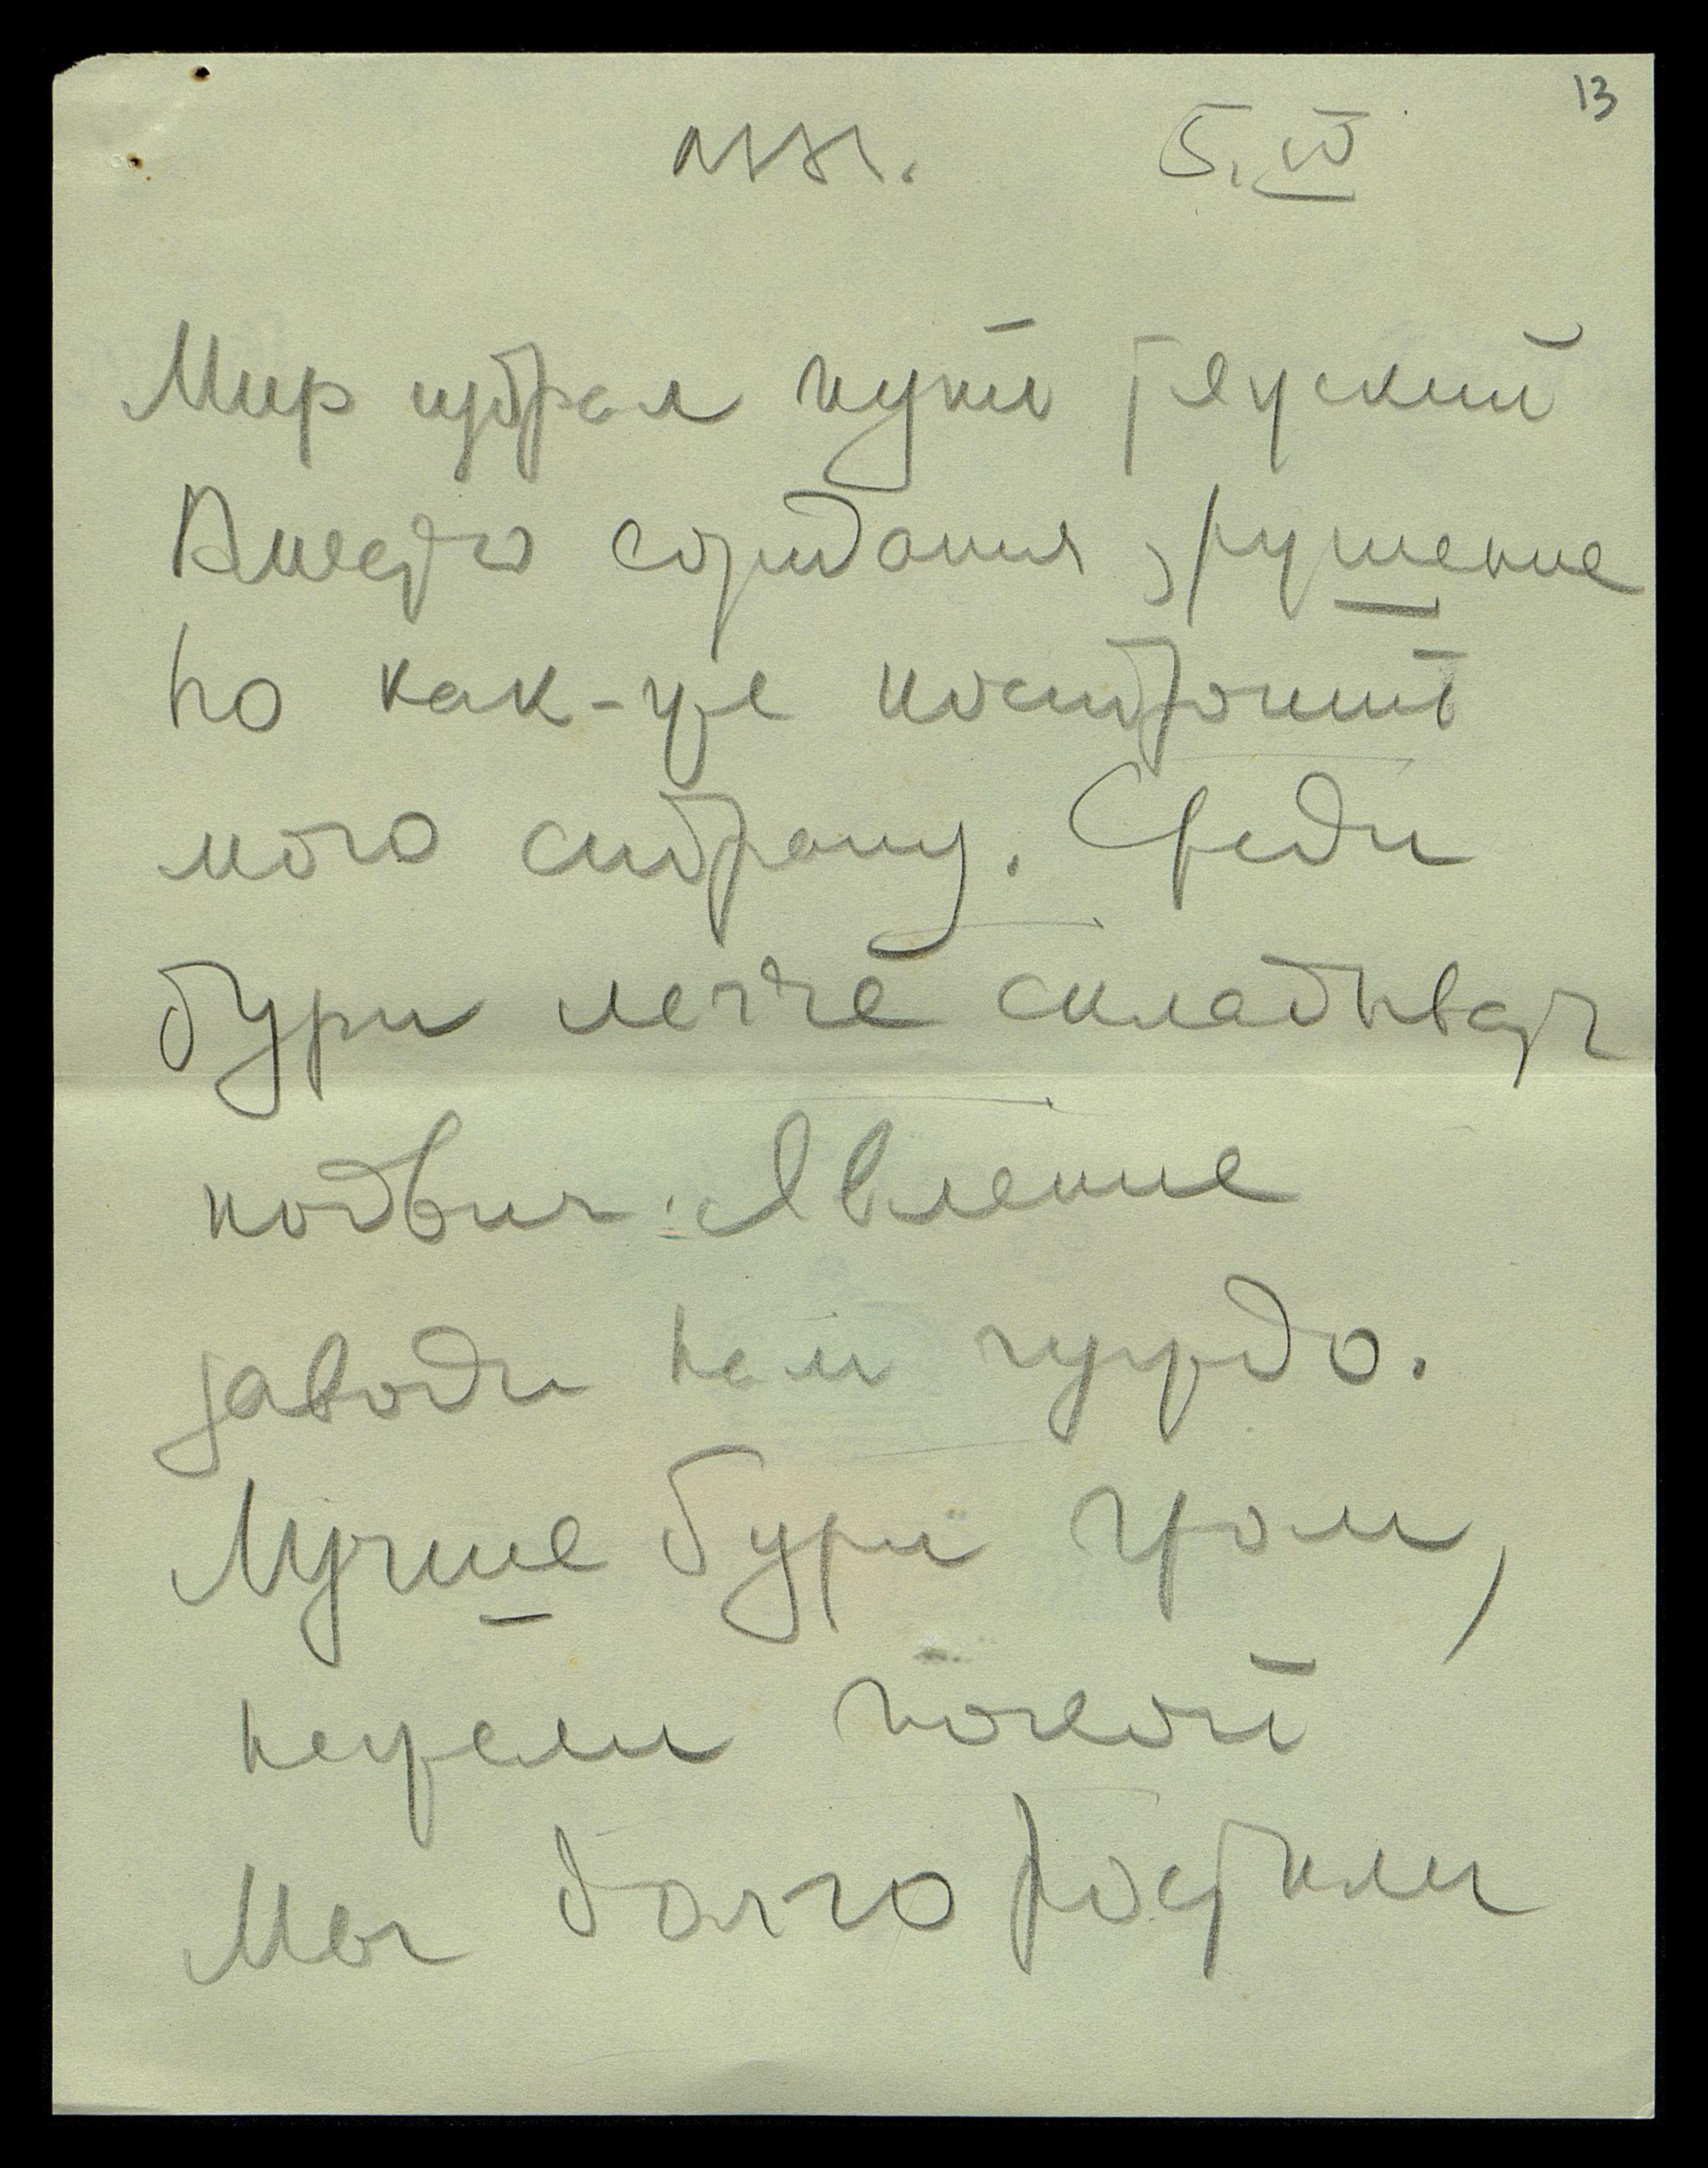 13
5. VII
Мир избрал путь тяуский
Вместо созидания, рушение
но как-же построить
мою страну. Среди
бури легче складывать
подвиг. Явление
заводи нам чуждо.
Лучше бури гром,
нежели покой
Мы долгоростили